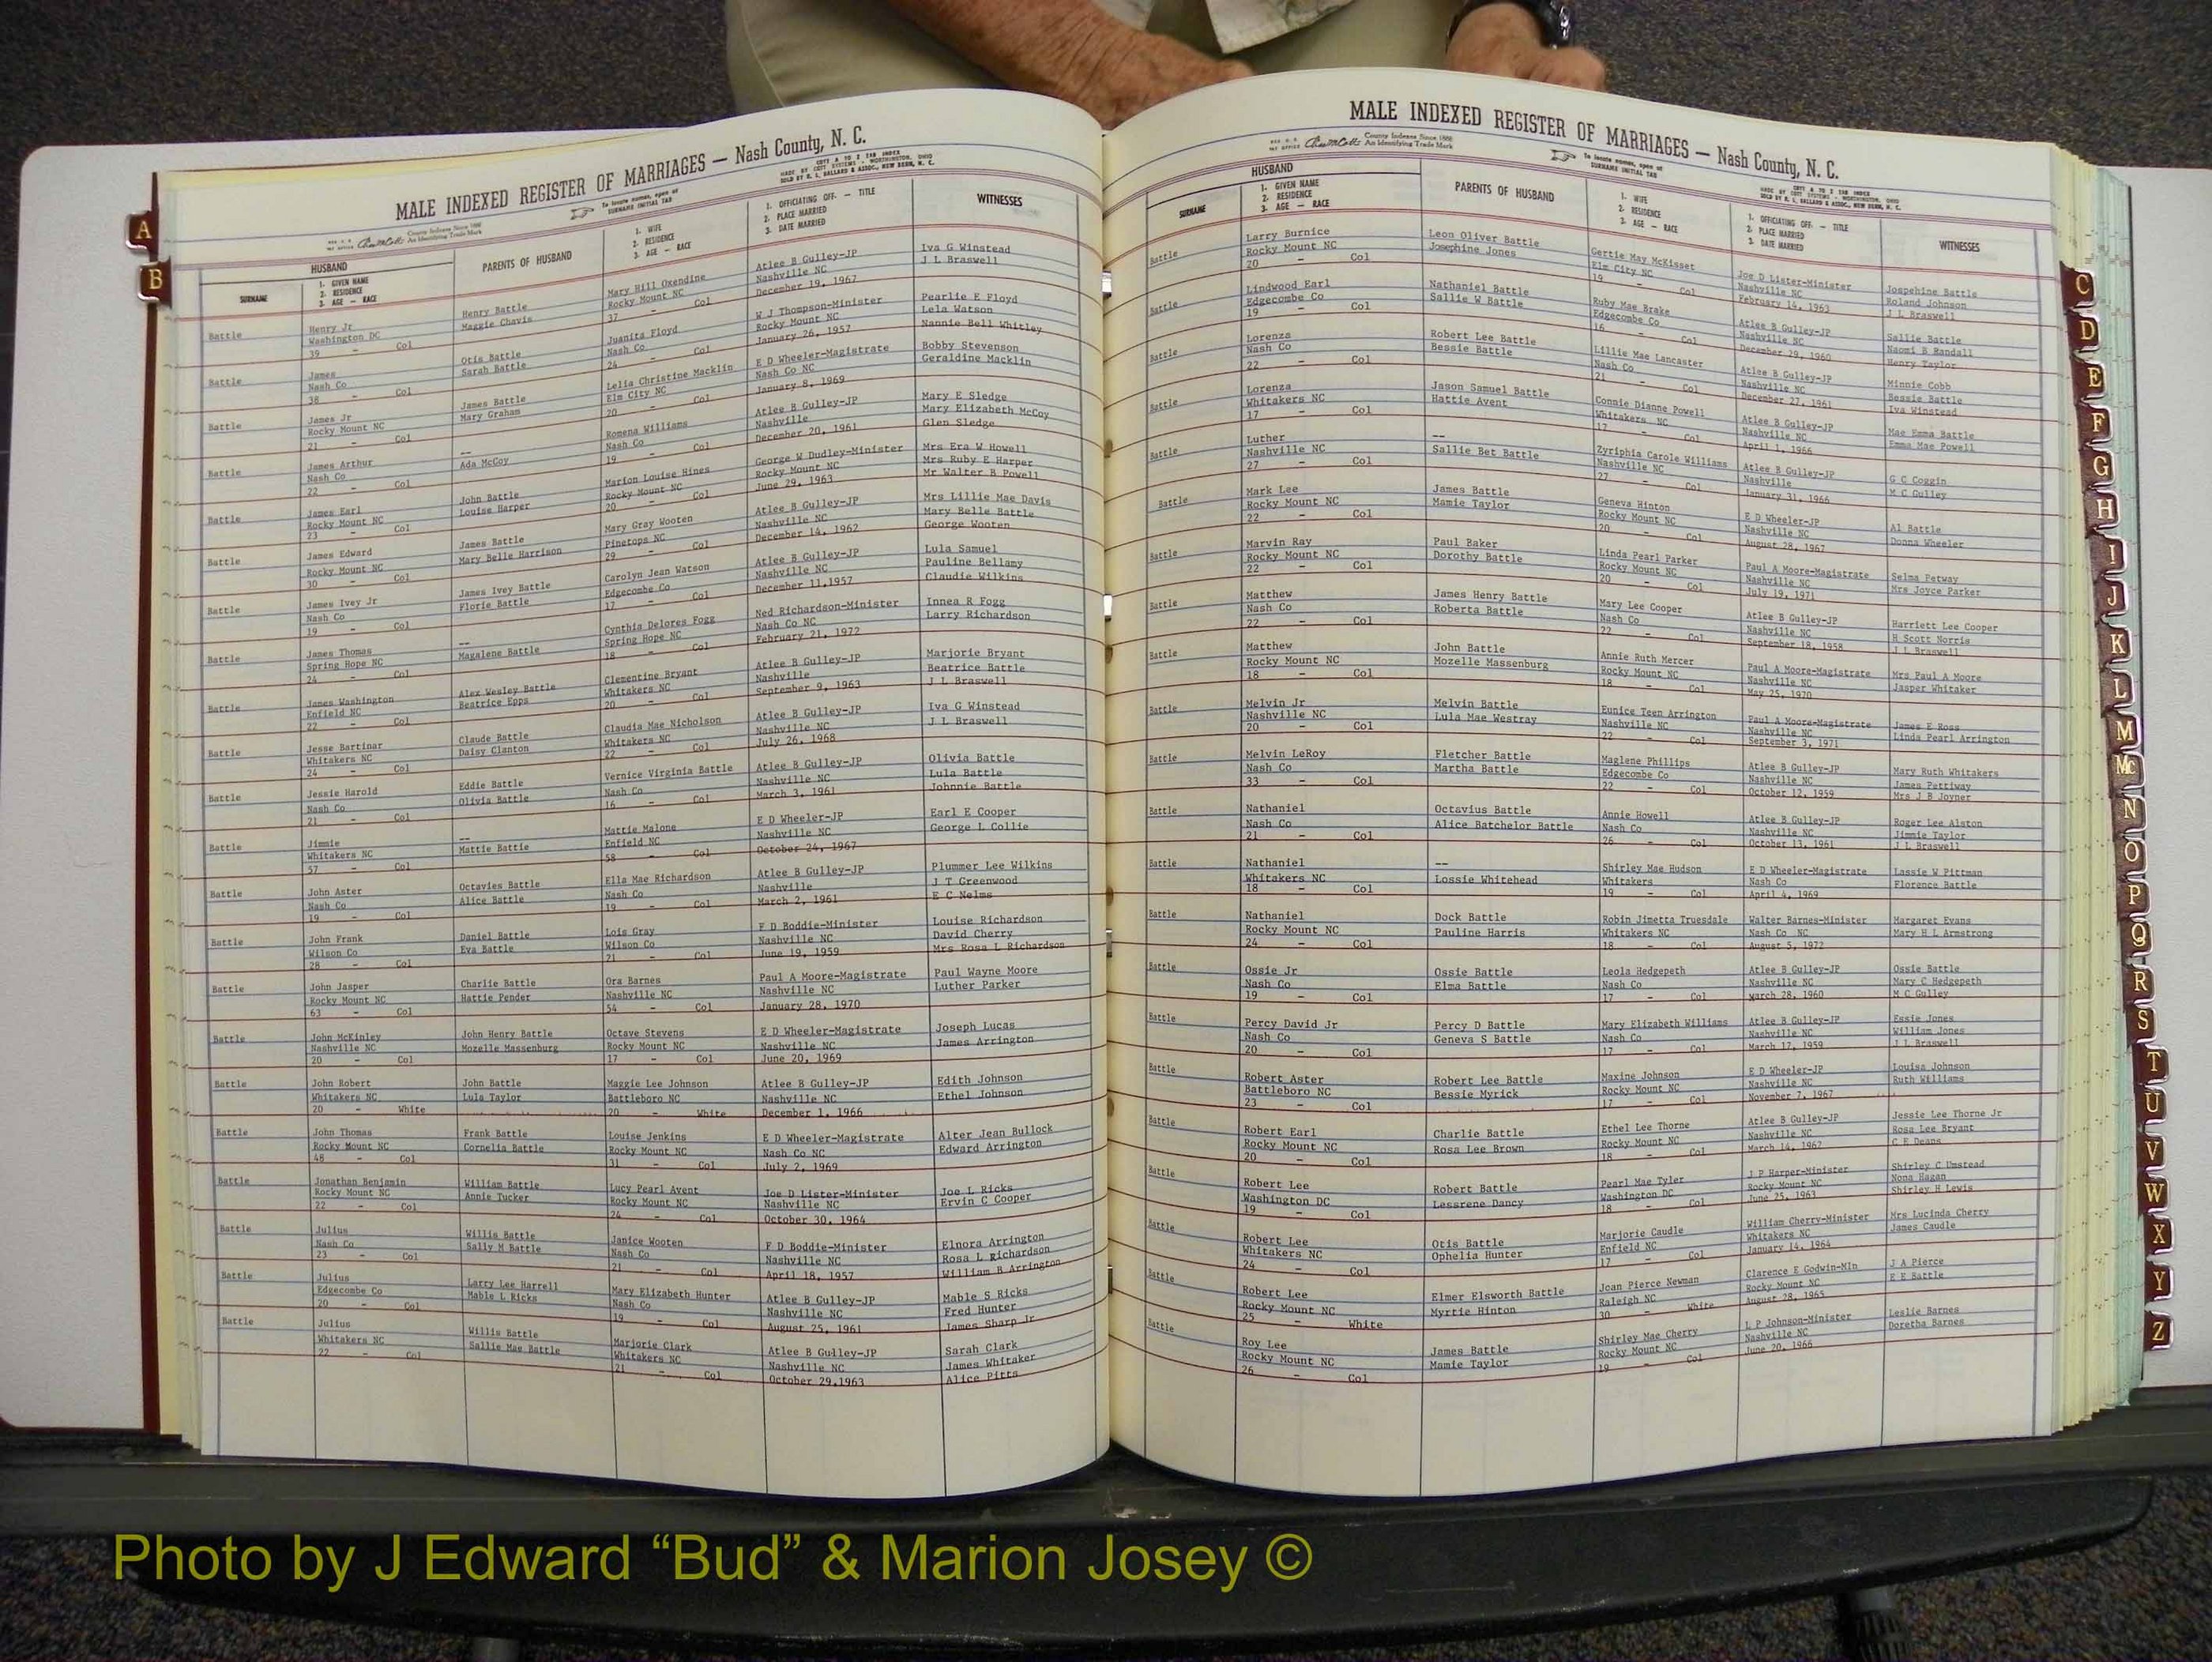 MALE INDEXED REGISTER OF MARRIAGES — Nash County, N. C.
To locate names, open at
SURNAME INITIAL TAB
County Indexes Since 1888
An Identifying Trade Mark
HUSBAND
SURNAME
1. GIVEN NAME
2. RESIDENCE
3. AGE — RACE
PARENTS OF HUSBAND
1. WIFE
2. RESIDENCE
3. AGE — RACE
1. OFFICIATING OFF. — TITLE
2. PLACE MARRIED
3. DATE MARRIED
WITNESSES
Battle Henry Jr Henry Battle Mary Hill Oxendine Atlee B Gulley-JP Iva G Winstead
Washington DC Maggie Chavis Rocky Mount NC Nashville NC J L Braswell
39 - Col 37 - Col December 19, 1967
Battle James Otis Battle Juanita Floyd W J Thompson-Minister Pearlie E Floyd
Nash Co Sarah Battle Nash Co Rocky Mount NC Lela Watson
38 - Col 24 - Col January 26, 1957 Nannie Bell Whitley
Battle James Jr James Battle Lelia Christine Macklin E D Wheeler-Magistrate Bobby Stevenson
Rocky Mount NC Mary Graham Elm City NC Nash Co NC Geraldine Macklin
21 - Col 20 - Col January 8, 1969
Battle James Arthur -- Romena Williams Atlee B Gulley-JP Mary E Sledge
Nash Co Ada McCoy Nash Co Nashville Mary Elizabeth McCoy
22 - Col 19 - Col December 20, 1961 Glen Sledge
Battle James Earl John Battle Marion Louise Hines George W Dudley-Minister Mrs Era W Howell
Rocky Mount NC Louise Harper Rocky Mount NC Rocky Mount NC Mrs Ruby E Harper
23 - Col 20 - Col June 29, 1963 Mr Walter B Powell
Battle James Edward James Battle Mary Gray Wooten Atlee B Gulley-JP Mrs Lillie Mae Davis
Rocky Mount NC Mary Belle Harrison Pinetops NC Nashville NC Mary Belle Battle
30 - Col 29 - Col December 14, 1962 George Wooten
Battle James Ivey Jr James Ivey Battle Carolyn Jean Watson Atlee B Gulley-JP Lula Samuel
Nash Co Florie Battle Edgecombe Co Nashville NC Pauline Bellamy
19 - Col 17 - Col December 11,1957 Claudie Wilkins
Battle James Thomas -- Cynthia Delores Fogg Ned Richardson-Minister Innea R Fogg
Spring Hope NC Magalene Battle Spring Hope NC Nash Co NC Larry Richardson
24 - Col 18 - Col February 21, 1972
Battle James Washington Alex Wesley Battle Clementine Bryant Atlee B Gulley-JP Marjorie Bryant
Enfield NC Beatrice Epps Whitakers NC Nashville Beatrice Battle
22 - Col 20 - Col September 9, 1963 J L Braswell
Battle Jesse Bartinar Claude Battle Claudia Mae Nicholson Atlee B Gulley-JP Iva G Winstead
Whitakers NC Daisy Clanton Whitakers NC Nashville NC J L Braswell
24 - Col 22 - Col July 26, 1968
Battle Jessie Harold Eddie Battle Vernice Virginia Battle Atlee B Gulley-JP Olivia Battle
Nash Co Olivia Battle Nash Co Nashville NC Lula Battle
21 - Col 16 - Col March 3, 1961 Johnnie Battle
Battle Jimmie -- Mattie Malone E D Wheeler-JP Earl E Cooper
Whitakers NC Mattie Battie Enfield NC Nashville NC George L Collie
57 - Col 58 - Col October 24, 1967
Battle John Aster Octavies Battle Ella Mae Richardson Atlee B Gulley-JP Plummer Lee Wilkins
Nash Co Alice Battle Nash Co Nashville J T Greenwood
19 - Col 19 - Col March 2, 1961 E C Nelms
Battle John Frank Daniel Battle Lois Gray F D Boddie-Minister Louise Richardson
Wilson Co Eva Battle Wilson Co Nashville NC David Cherry
28 - Col 21 - Col June 19, 1959 Mrs Rosa L Richardson
Battle John Jasper Charlie Battle Ora Barnes Paul A Moore-Magistrate Paul Wayne Moore
Rocky Mount NC Hattie Pender Nashville NC Nashville NC Luther Parker
63 - Col 54 - Col January 28, 1970
Battle John McKinley John Henry Battle Octave Stevens E D Wheeler-Magistrate Joseph Lucas
Nashville NC Mozelle Massenburg Rocky Mount NC Nashville NC James Arrington
20 - Col 17 - Col June 20, 1969
Battle John Robert John Battle Maggie Lee Johnson Atlee B Gulley-JP Edith Johnson
Whitakers NC Lula Taylor Battleboro NC Nashville NC Ethel Johnson
20 - White 20 - White December 1, 1966
Battle John Thomas Frank Battle Louise Jenkins E D Wheeler-Magistrate Alter Jean Bullock
Rocky Mount NC Cornelia Battle Rocky Mount NC Nash Co NC Edward Arrington
48 - Col 31 - Col July 2, 1969
Battle Jonathan Benjamin William Battle Lucy Pearl Avent Joe D Lister-Minister Joe L Ricks
Rocky Mount NC Annie Tucker Rocky Mount NC Nashville NC Ervin C Cooper
22 - Col 24 - Col October 30, 1964
Battle Julius Willis Battle Janice Wooten F D Boddie-Minister Elnora Arrington
Nash Co Sally M Battle Nash Co Nashville NC Rosa L Richardson
23 - Col 21 - Col April 18, 1957 William B Arrington
Battle Julius Larry Lee Harrell Mary Elizabeth Hunter Atlee B Gulley-JP Mable S Ricks
Edgecombe Co Mable L Ricks Nash Co Nashville NC Fred Hunter
20 - Col 19 - Col August 25, 1961 James Sharp Jr
Battle Julius Willis Battle Marjorie Clark Atlee B Gulley-JP Sarah Clark
Whitakers NC Sallie Mae Battle Whitakers NC Nashville NC James Whitaker
22 - Col 21 - Col October 29,1963 Alice Pitts
MALE INDEXED REGISTER OF MARRIAGES — Nash County, N. C.
County Indexes Since 1888
An Identifying Trade Mark
To locate names, open at
SURNAME INITIAL TAB
HUSBAND
SURNAME
1. GIVEN NAME
2. RESIDENCE
3. AGE — RACE
PARENTS OF HUSBAND
1. WIFE
2. RESIDENCE
3. AGE — RACE
1. OFFICIATING OFF. — TITLE
2. PLACE MARRIED
3. DATE MARRIED
WITNESSES
Battle Larry Burnice Leon Oliver Battle Gertie May McKisset Joe D Lister-Minister Jospehine Battle
Rocky Mount NC Josephine Jones Elm City NC Nashville NC Roland Johnson
20 - Col 19 - Col February 14, 1963 J L Braswell
Battle Lindwood Earl Nathaniel Battle Ruby Mae Brake Atlee B Gulley-JP Sallie Battle
Edgecombe Co Sallie W Battle Edgecombe Co Nashville NC Naomi B Randall
19 - Col 16 - Col December 29, 1960 Henry Taylor
Battle Lorenza Robert Lee Battle Lillie Mae Lancaster Atlee B Gulley-JP Minnie Cobb
Nash Co Bessie Battle Nash Co Nashville NC Bessie Battle
22 - Col 21 - Col December 27, 1961 Iva Winstead
Battle Lorenza Jason Samuel Battle Connie Dianne Powell Atlee B Gulley-JP Mae Emma Battle
Whitakers NC Hattie Avent Whitakers NC Nashville NC Emma Mae Powell
17 - Col 17 - Col April 1, 1966
Battle Luther -- Zyriphia Carole Williams Atlee B Gulley-JP G C Coggin
Nashville NC Sallie Bet Battle Nashville NC Nashville M C Gulley
27 - Col 27 - Col January 31, 1966
Battle Mark Lee James Battle Geneva Hinton E D Wheeler-JP Al Battle
Rocky Mount NC Mamie Taylor Rocky Mount NC Nashville NC Donna Wheeler
22 - Col 20 - Col August 28, 1967
Battle Marvin Ray Paul Baker Linda Pearl Parker Paul A Moore-Magistrate Selma Petway
Rocky Mount NC Dorothy Battle Rocky Mount NC Nashville NC Mrs Joyce Parker
22 - Col 20 - Col July 19, 1971
Battle Matthew James Henry Battle Mary Lee Cooper Atlee B Gulley-JP Harriett Lee Cooper
Nash Co Roberta Battle Nash Co Nashville NC H Scott Norris
22 - Col 22 - Col September 18, 1958 J L Braswell
Battle Matthew John Battle Annie Ruth Mercer Paul A Moore-Magistrate Mrs Paul A Moore
Rocky Mount NC Mozelle Massenburg Rocky Mount NC Nashville NC Jasper Whitaker
18 - Col 18 - Col May 25, 1970
Battle Melvin Jr Melvin Battle Eunice Teen Arrington Paul A Moore-Magistrate James E Ross
Nashville NC Lula Mae Westray Nashville NC Nashville NC Linda Pearl Arrington
20 - Col 22 - Col September 3, 1971
Battle Melvin LeRoy Fletcher Battle Maglene Phillips Atlee B Gulley-JP Mary Ruth Whitakers
Nash Co Martha Battle Edgecombe Co Nashville NC James Pettiway
33 - Col 22 - Col October 12, 1959 Mrs J B Joyner
Battle Nathaniel Octavius Battle Annie Howell Atlee B Gulley-JP Roger Lee Alston
Nash Co Alice Batchelor Battle Nash Co Nashville NC Jimmie Taylor
21 - Col 26 - Col October 13, 1961 J L Braswell
Battle Nathaniel -- Shirley Mae Hudson E D Wheeler-Magistrate Lassie W Pittman
Whitakers NC Lossie Whitehead Whitakers Nash Co Florence Battle
18 - Col 19 - Col April 4, 1969
Battle Nathaniel Dock Battle Robin Jimetta Truesdale Walter Barnes-Minister Margaret Evans
Rocky Mount NC Pauline Harris Whitakers NC Nash Co NC Mary H L Armstrong
24 - Col 18 - Col August 5, 1972
Battle Ossie Jr Ossie Battle Leola Hedgepeth Atlee B Gulley-JP Ossie Battle
Nash Co Elma Battle Nash Co Nashville NC Mary C Hedgepeth
19 - Col 17 - Col March 28, 1960 M C Gulley
Battle Percy David Jr Percy D Battle Mary Elizabeth Williams Atlee B Gulley-JP Essie Jones
Nash Co Geneva S Battle Nash Co Nashville NC William Jones
20 - Col 17 - Col March 17, 1959 J L Braswell
Battle Robert Aster Robert Lee Battle Maxine Johnson E D Wheeler-JP Louisa Johnson
Battleboro NC Bessie Myrick Rocky Mount NC Nashville NC Ruth Williams
23 - Col 17 - Col November 7, 1967
Battle Robert Earl Charlie Battle Ethel Lee Thorne Atlee B Gulley-JP Jessie Lee Thorne Jr
Rocky Mount NC Rosa Lee Brown Rocky Mount NC Nashville NC Rosa Lee Bryant
20 - Col 18 - Col March 14, 1962 C E Deans
Battle Robert Lee Robert Battle Pearl Mae Tyler J P Harper-Minister Shirley C Umstead
Washington DC Lessrene Dancy Washington DC Rocky Mount NC Nona Hagan
19 - Col 18 - Col June 25, 1963 Shirley H Lewis
Battle Robert Lee Otis Battle Marjorie Caudle William Cherry-Minister Mrs Lucinda Cherry
Whitakers NC Ophelia Hunter Enfield NC Whitakers NC James Caudle
24 - Col 17 - Col January 14, 1964
Battle Robert Lee Elmer Elsworth Battle Joan Pierce Newman Clarence E Godwin-Min J A Pierce
Rocky Mount NC Myrtie Hinton Raleigh NC Rocky Mount NC E E Battle
25 - White 30 - White August 28, 1965
Battle Roy Lee James Battle Shirley Mae Cherry L P Johnson-Minister Leslie Barnes
Rocky Mount NC Mamie Taylor Rocky Mount NC Nashville NC Doretha Barnes
26 - Col 19 - Col June 20, 1966
A
B
C
D
E
F
G
H
I
J
K
L
M
Mc
N
O
P
Q
R
S
T
U
V
W
X
Y
Z
Photo by J Edward “Bud” & Marion Josey ©